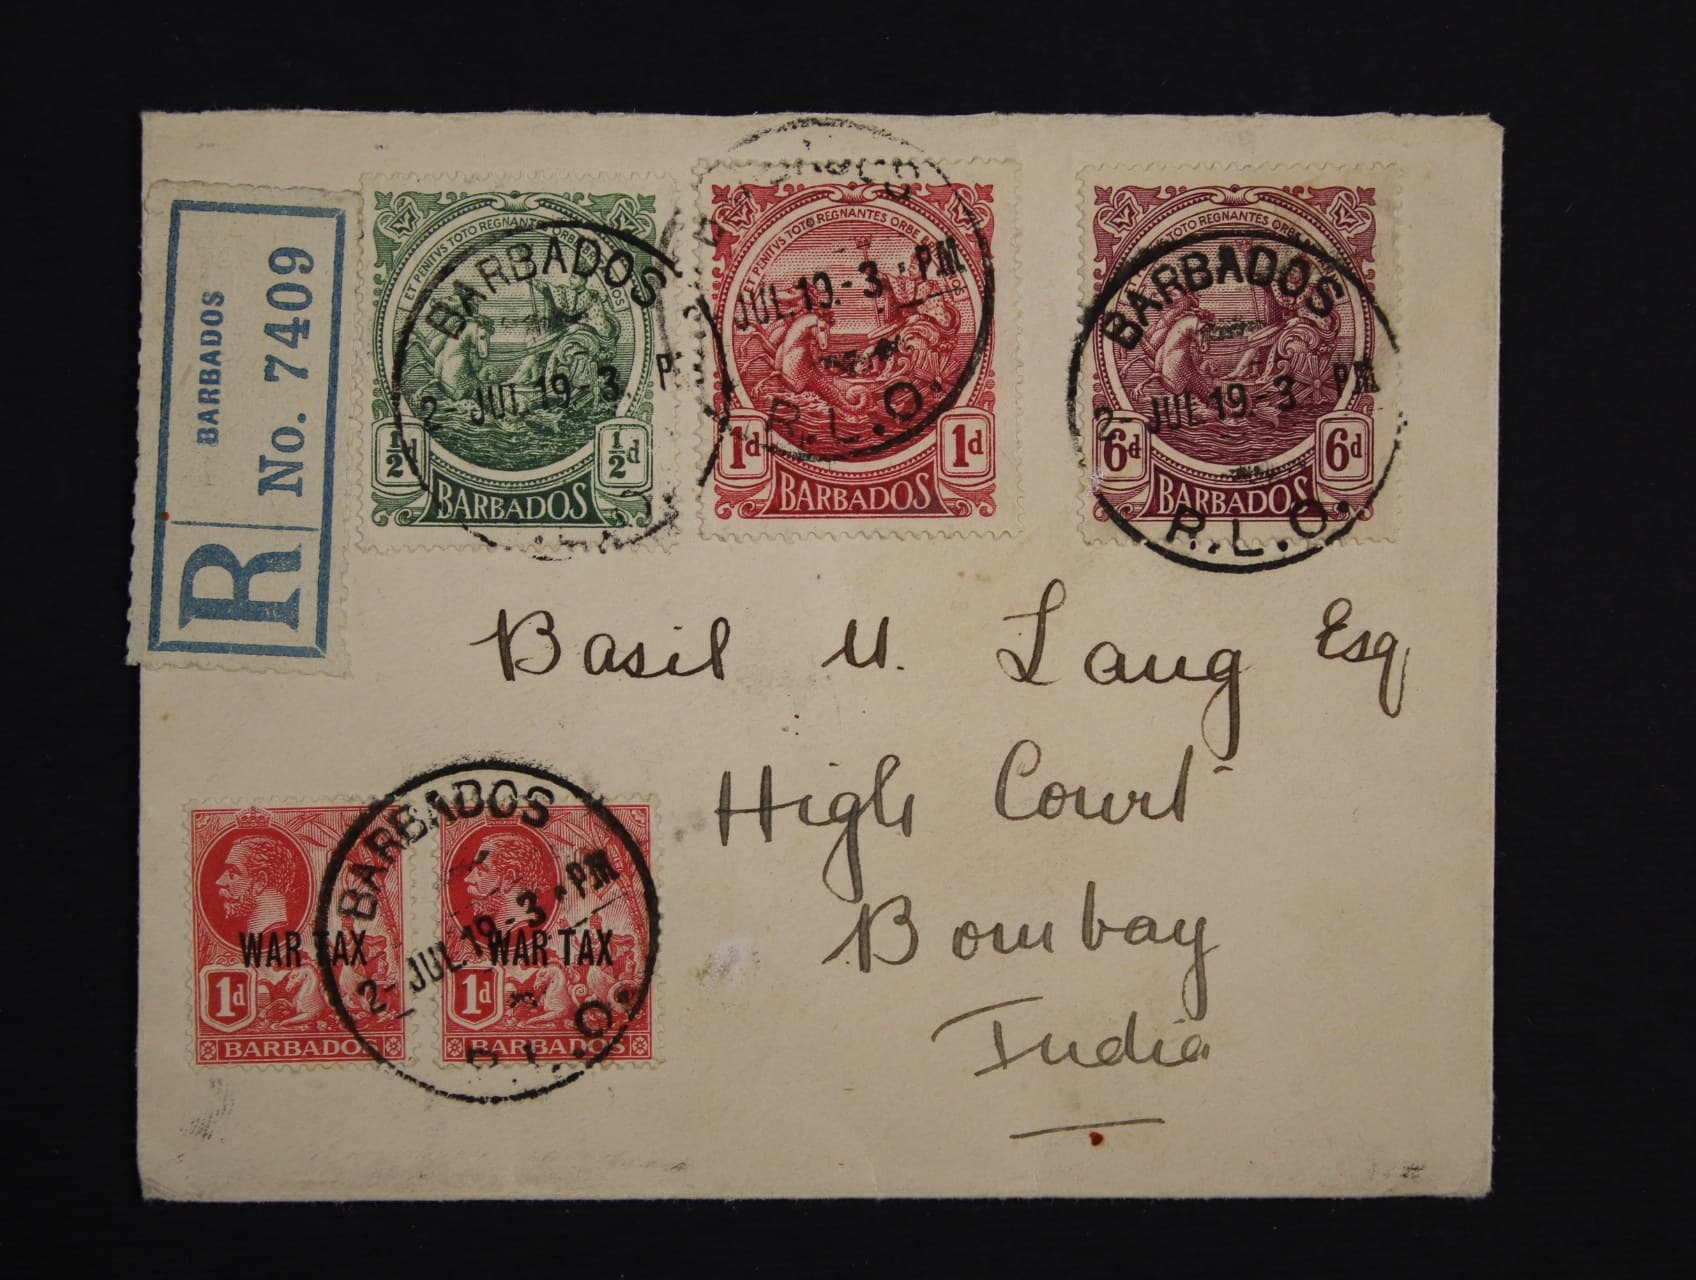 BARBADOS
R No. 7409
ET PENITVS TOTO REGNANTES ORBE
½d ½d
BARBADOS
ET PENITVS TOTO REGNANTES ORBE
1d 1d
BARBADOS
TOTO REGNANTES ORBE
6d 6d
BARBADOS
BARBADOS
2- JUL.19.-3. P
JUL.19.-3 . PM
R.L.O.
BARBADOS
2- JUL.19.-3 PM
R.L.O.
Basil N. Lang Esq
High Court
Bombay
India
WAR TAX
1d
BARBADOS
WAR TAX
1d
BARBADOS
BARBADOS
2- JUL.19.-3 . PM